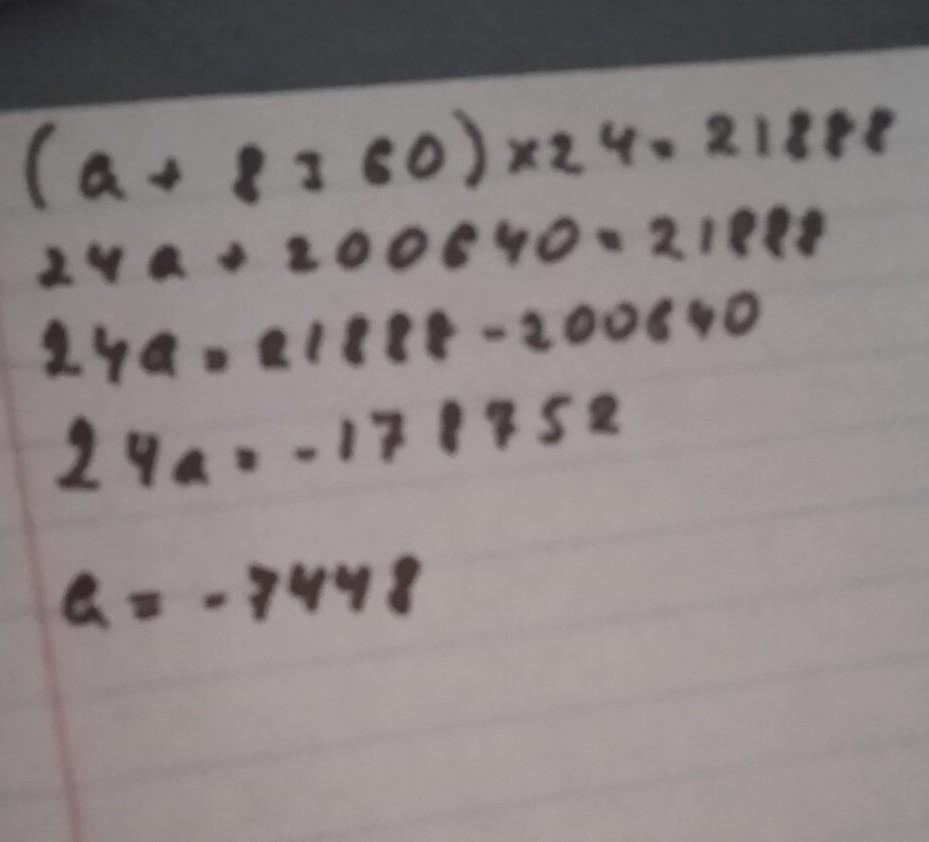 (a + 8360) × 24 = 21888
24a + 200640 = 21888
24a = 21888 - 200640
24a = -178752
a = -7448